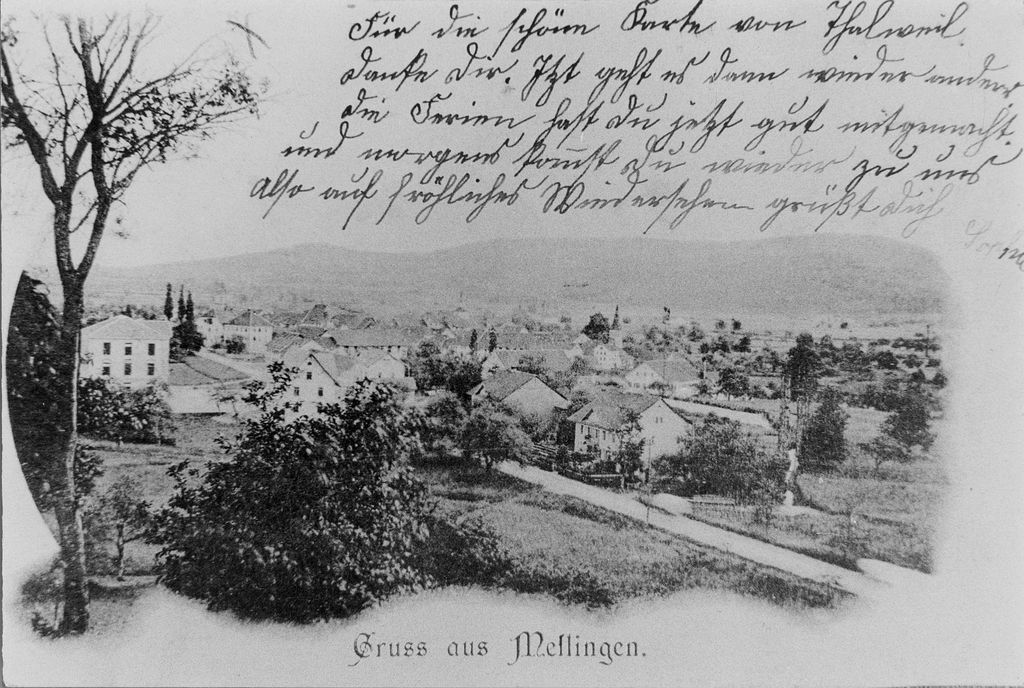 Für die schöne Karte von Thalweil
danke Dir. Jtzt geht es dann wieder anders,
die Ferien hast Du jetzt gut mitgemacht.
und morgens kommst Du wieder zu uns
Also auf fröhliches Wiedersehen grüßt Dich
Gruss aus Mellingen.